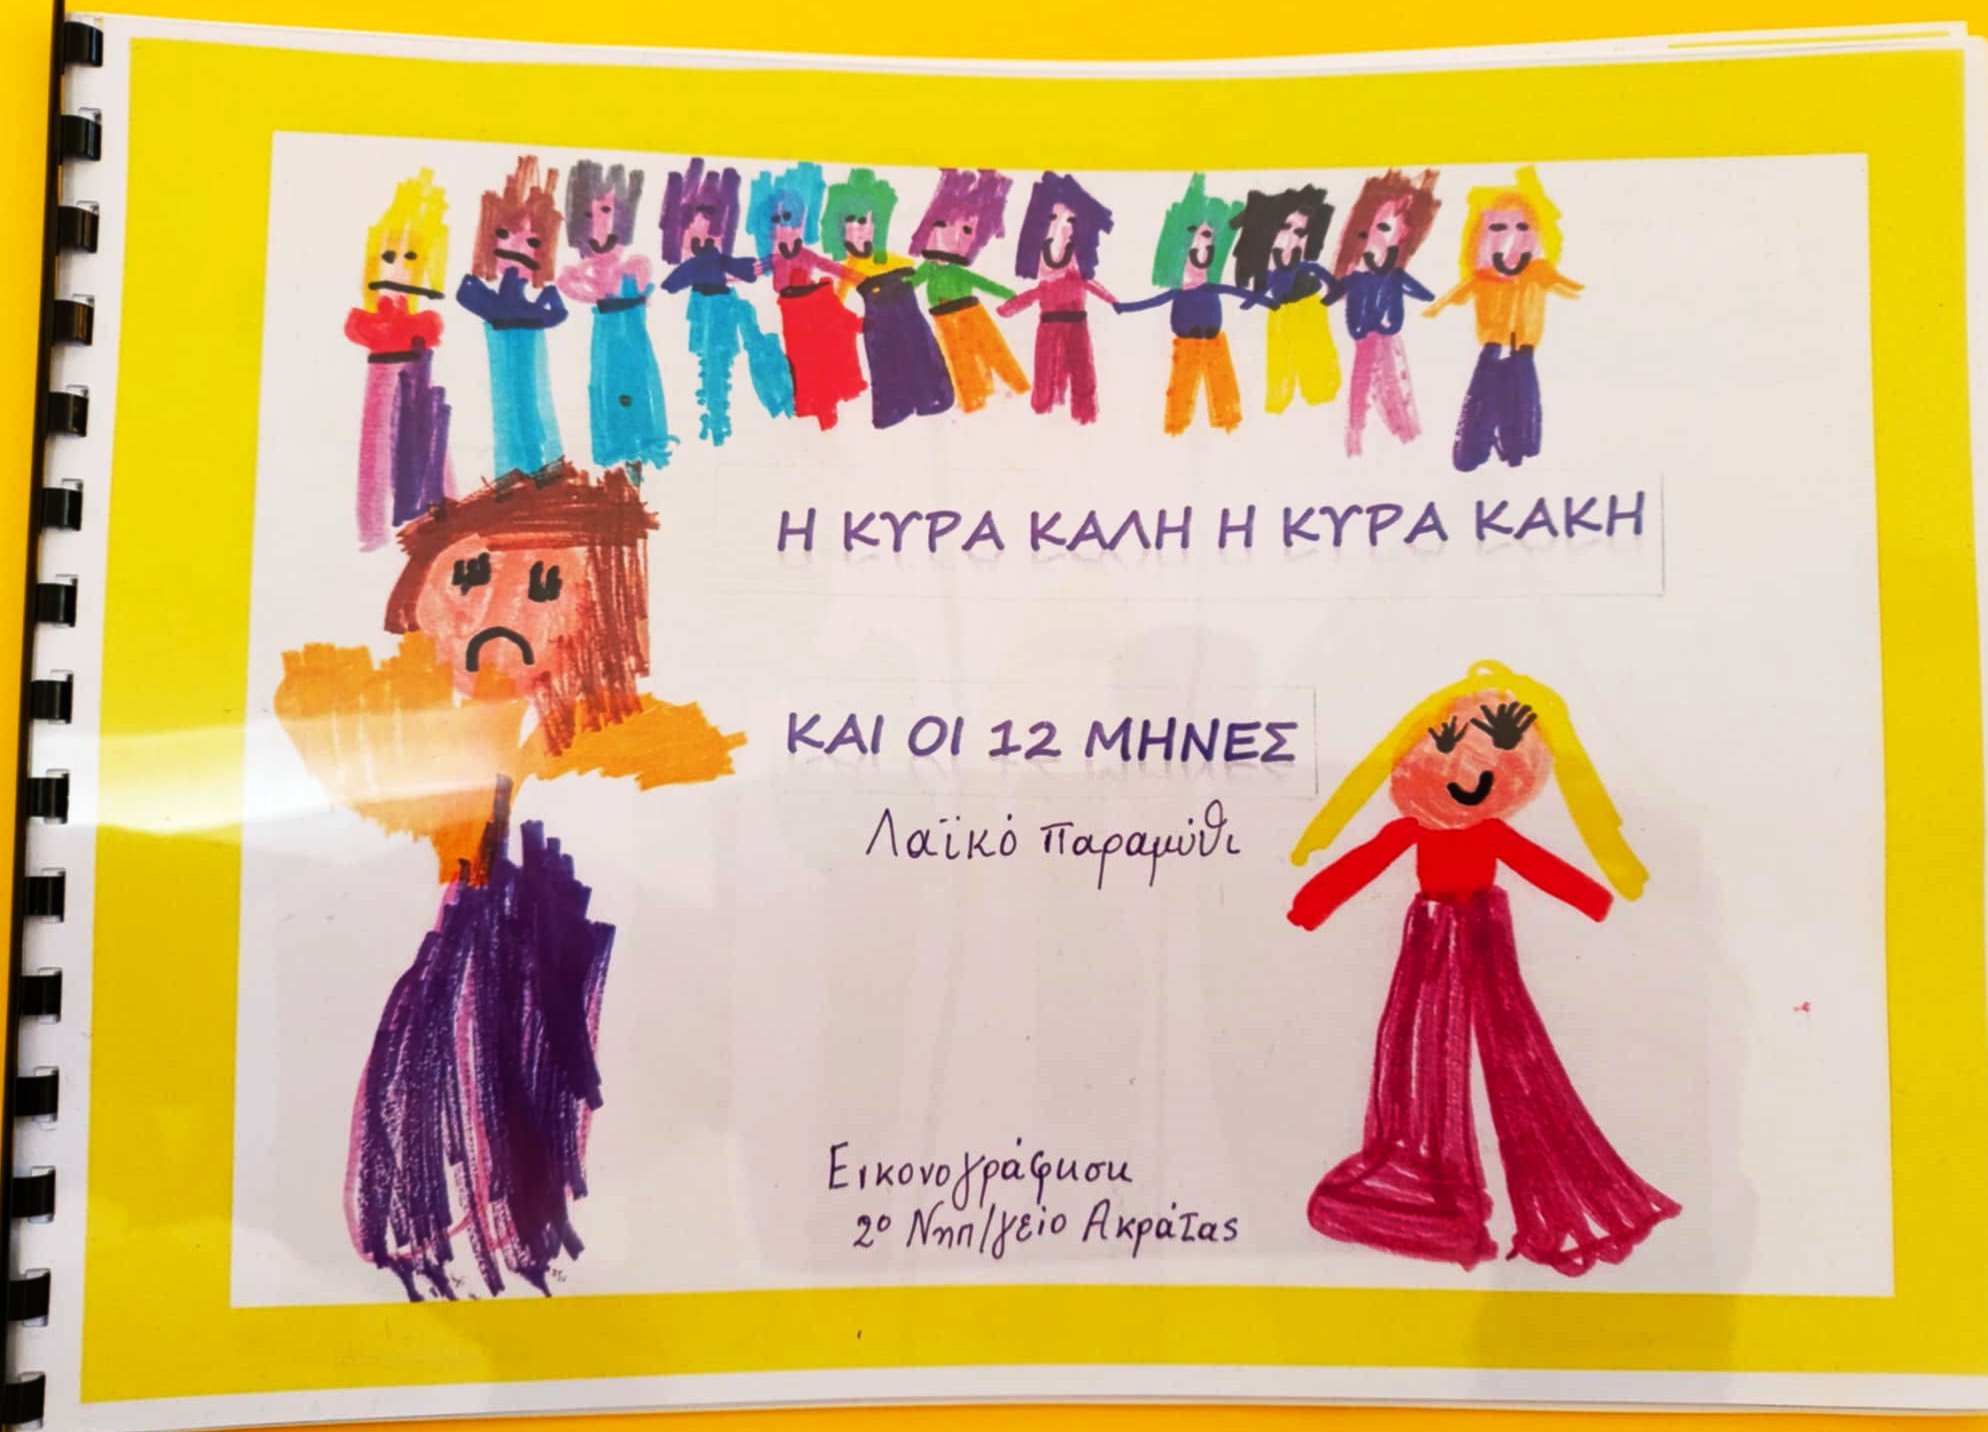 Η ΚΥΡΑ ΚΑΛΗ Η ΚΥΡΑ ΚΑΚΗ
ΚΑΙ ΟΙ 12 ΜΗΝΕΣ
Λαϊκό παραμύθι
Εικονογράφηση
2ο Νηπ/γείο Ακράτας